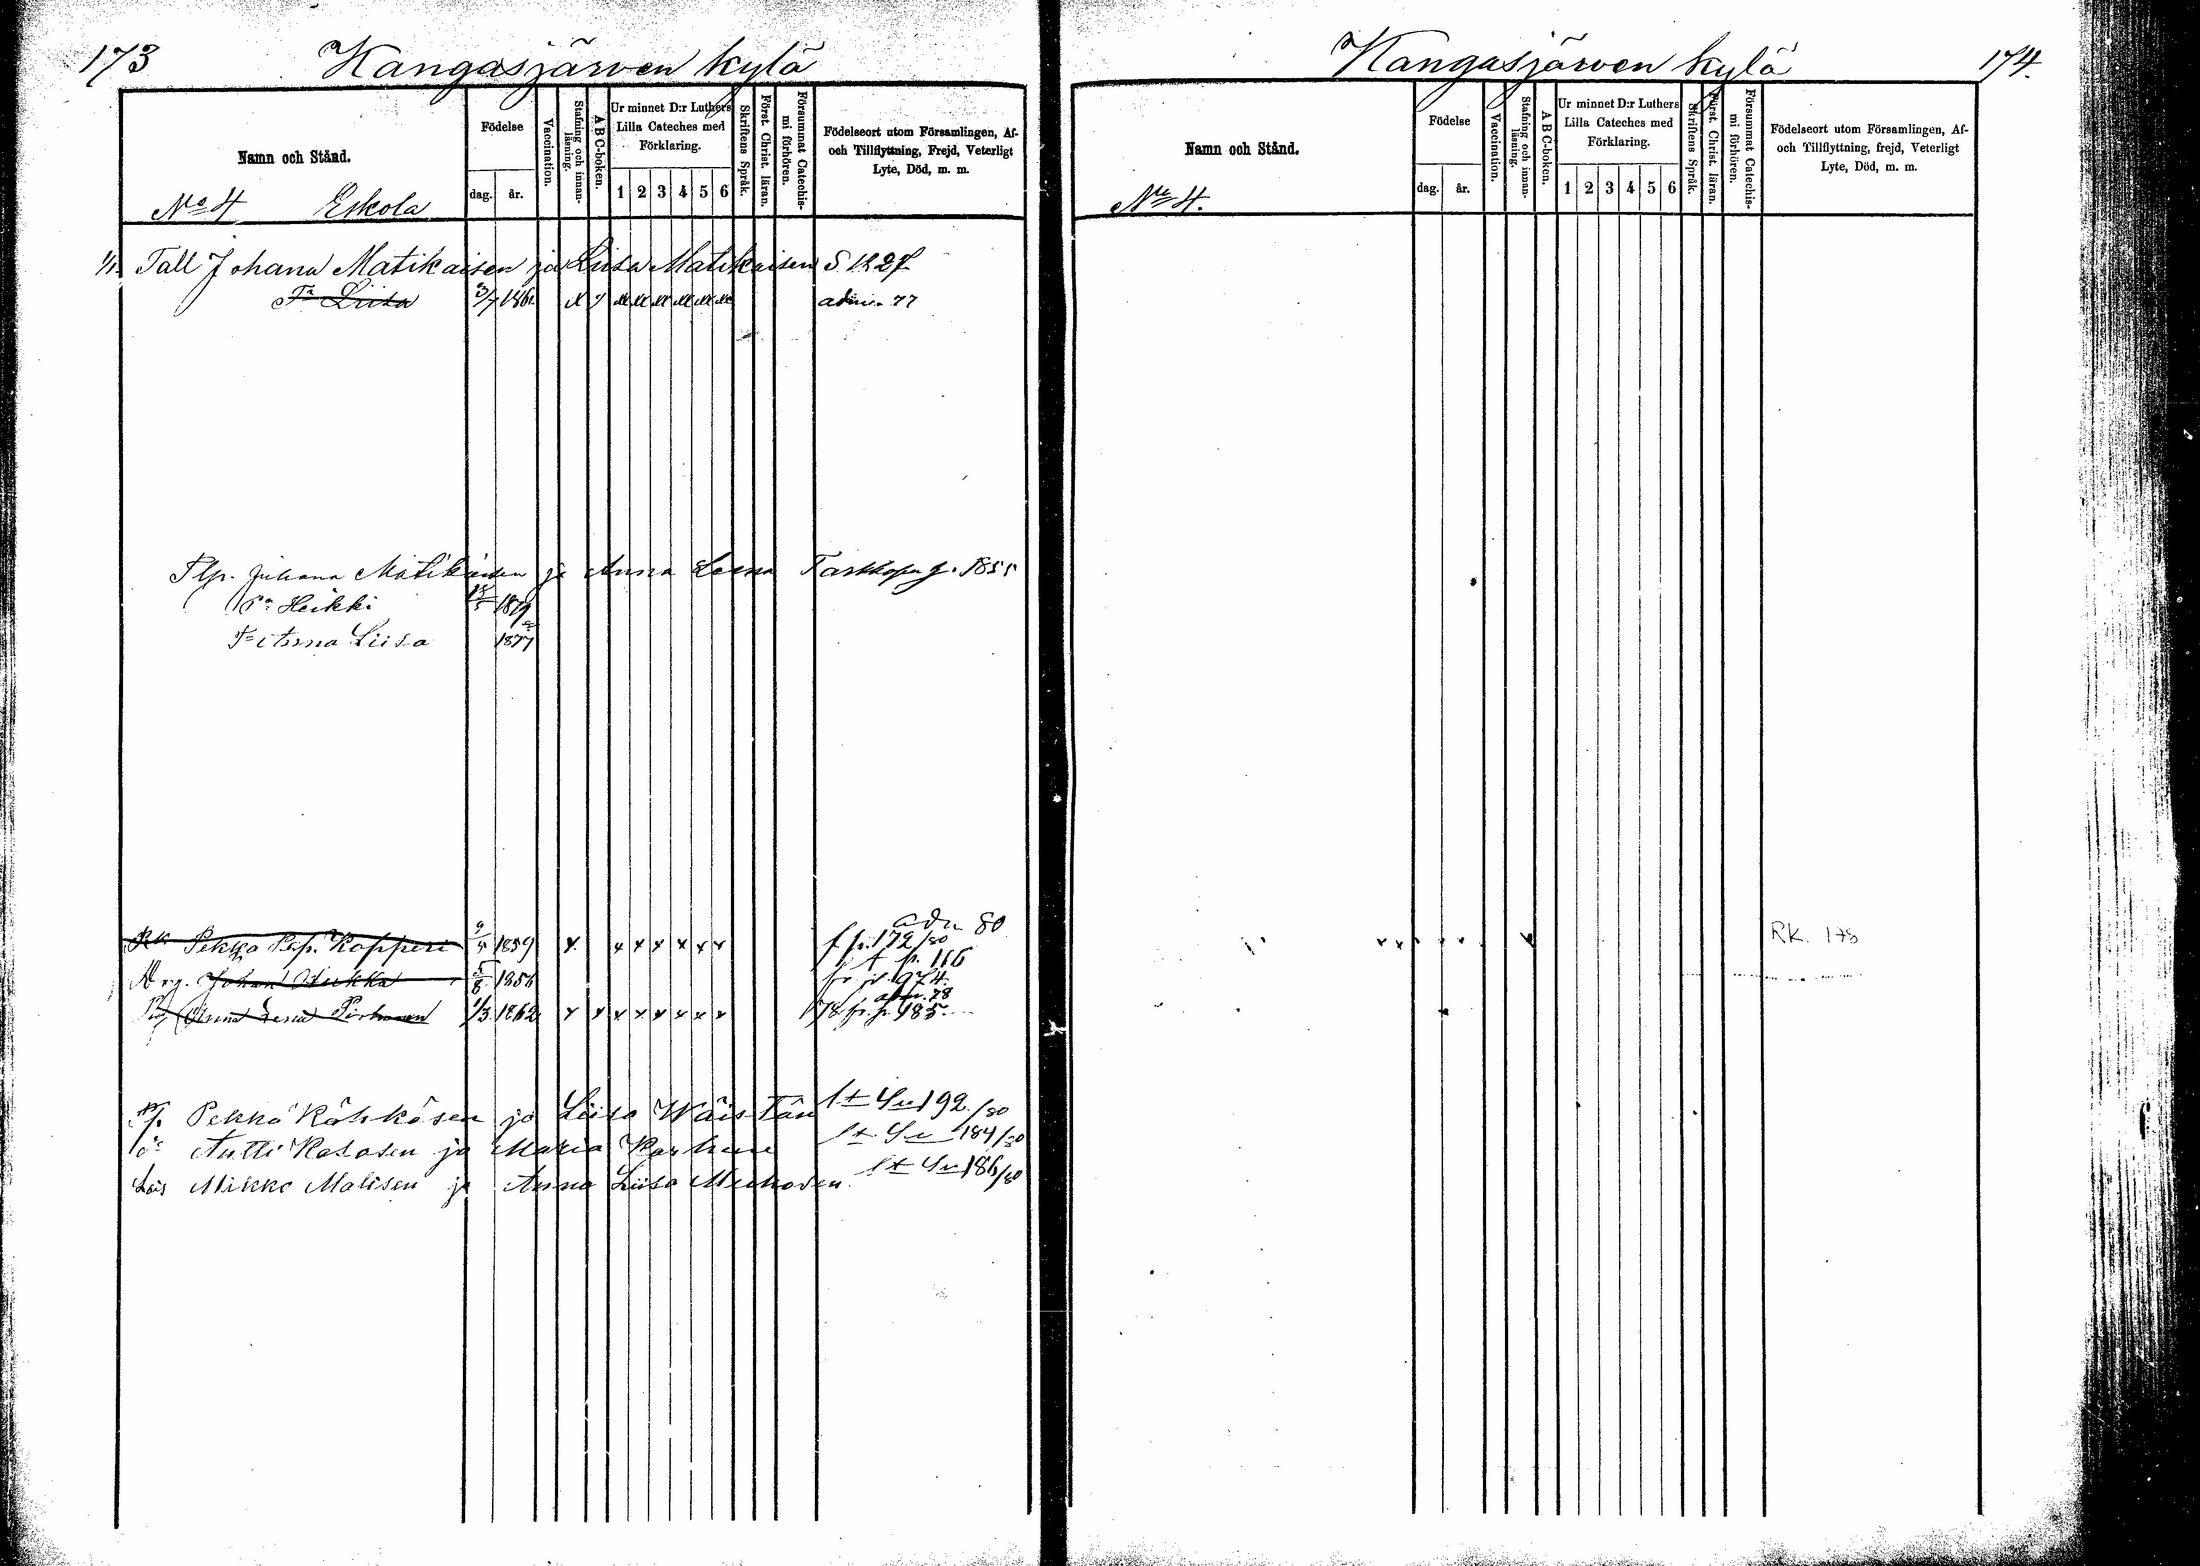 173
Kangasjärven kylä
Namn och Stånd.
Födelse
dag.
år.
Vaccination.
Stafning och innan-
läsning.
A B C-boken.
Ur minnet D:r Luthers
Lilla Cateches med
Förklaring.
1 2 3 4 5 6
Skriftens Språk.
Först. Christ. läran.
Försummat Catechis-
mi förhören.
Födelseort utom Församlingen, Af-
och Tillflyttning, Frejd, Veterligt
Lyte, Död, m. m.
No 4 Eskola
1/1 Tall Johana Matikaisen ja Liisa Matikaisen S. 1827
Tr Liisa 3/7 186
77
Juhana Matikaisen ja Anna Leena 1855
Pa Heikki 1879
Tr Anna Liisa 1877
adm 80
Rk Pekka Kopperi 1859 x x x x x x x f. p. 172/80
p. 116
Drg. Johan 1856
adm. 78
Anna Lena 1/3 1862 x x x x x x x x 78 fr. p. 185.
Pekka Röhkösen ja Liisa Wäistän 192/80
Antti ja Maria Karhune 184/80
Lois Mikko Malisen ja Anna Liisa 186/80
Kangasjärven kylä
174.
Namn och Stånd.
Födelse
dag.
år.
Vaccination.
Stafning och innan-
läsning.
A B C-boken.
Ur minnet D:r Luthers
Lilla Cateches med
Förklaring.
1 2 3 4 5 6
Skriftens Språk.
Först. Christ. läran.
Försummat Catechis-
mi förhören.
Födelseort utom Församlingen, Af-
och Tillflyttning, frejd, Veterligt
Lyte, Död, m. m.
No 4.
RK. 178